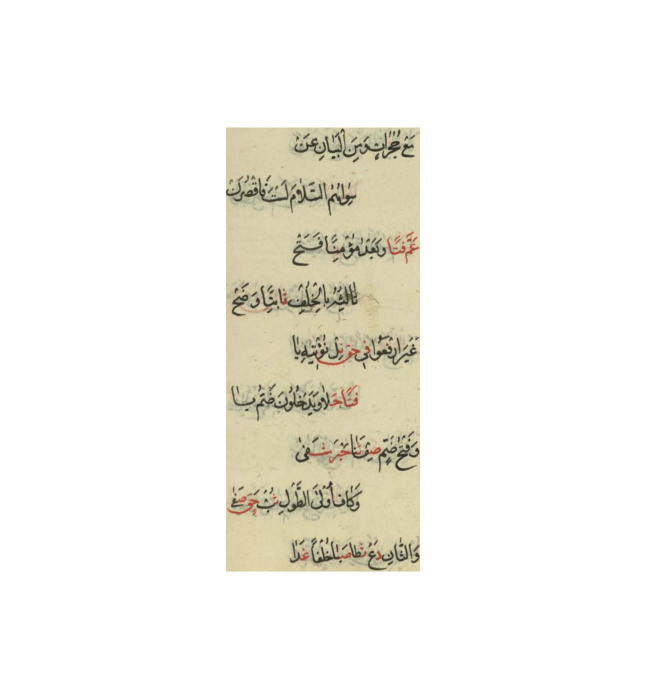 مَعْ حُجُرَاتٍ وَمِنَ الْبَيَانِ عَنْ
سِوَاهُمُ السَّلاَمَ لَسْتَ فَاقْصُرَنْ
عَمَّ فَتًا وَبَعْدُ مُؤْمِنًا فَتَحْ
ثَالِثَهُ بِالْخُلْفِ ثَابِتًا وَضَحْ
غَيْرَ ارْفَعُوا فِي حَقِّ نَلْ نُؤْتِيهِ يَا
فَتًا حَلاَ وَيَدْخُلُونَ ضَمُّ يَا
وَفَتْحُ ضَمٍّ صِفْ ثَنَا حَبْرٍ شَفِي
وَكَافَ أُولَى الطَّوْلِ ثُبْ حَقٌّ صَفِي
وَالثَّانِ دَعْ ثَطَا صَبَا خُلْفًا غَدَا